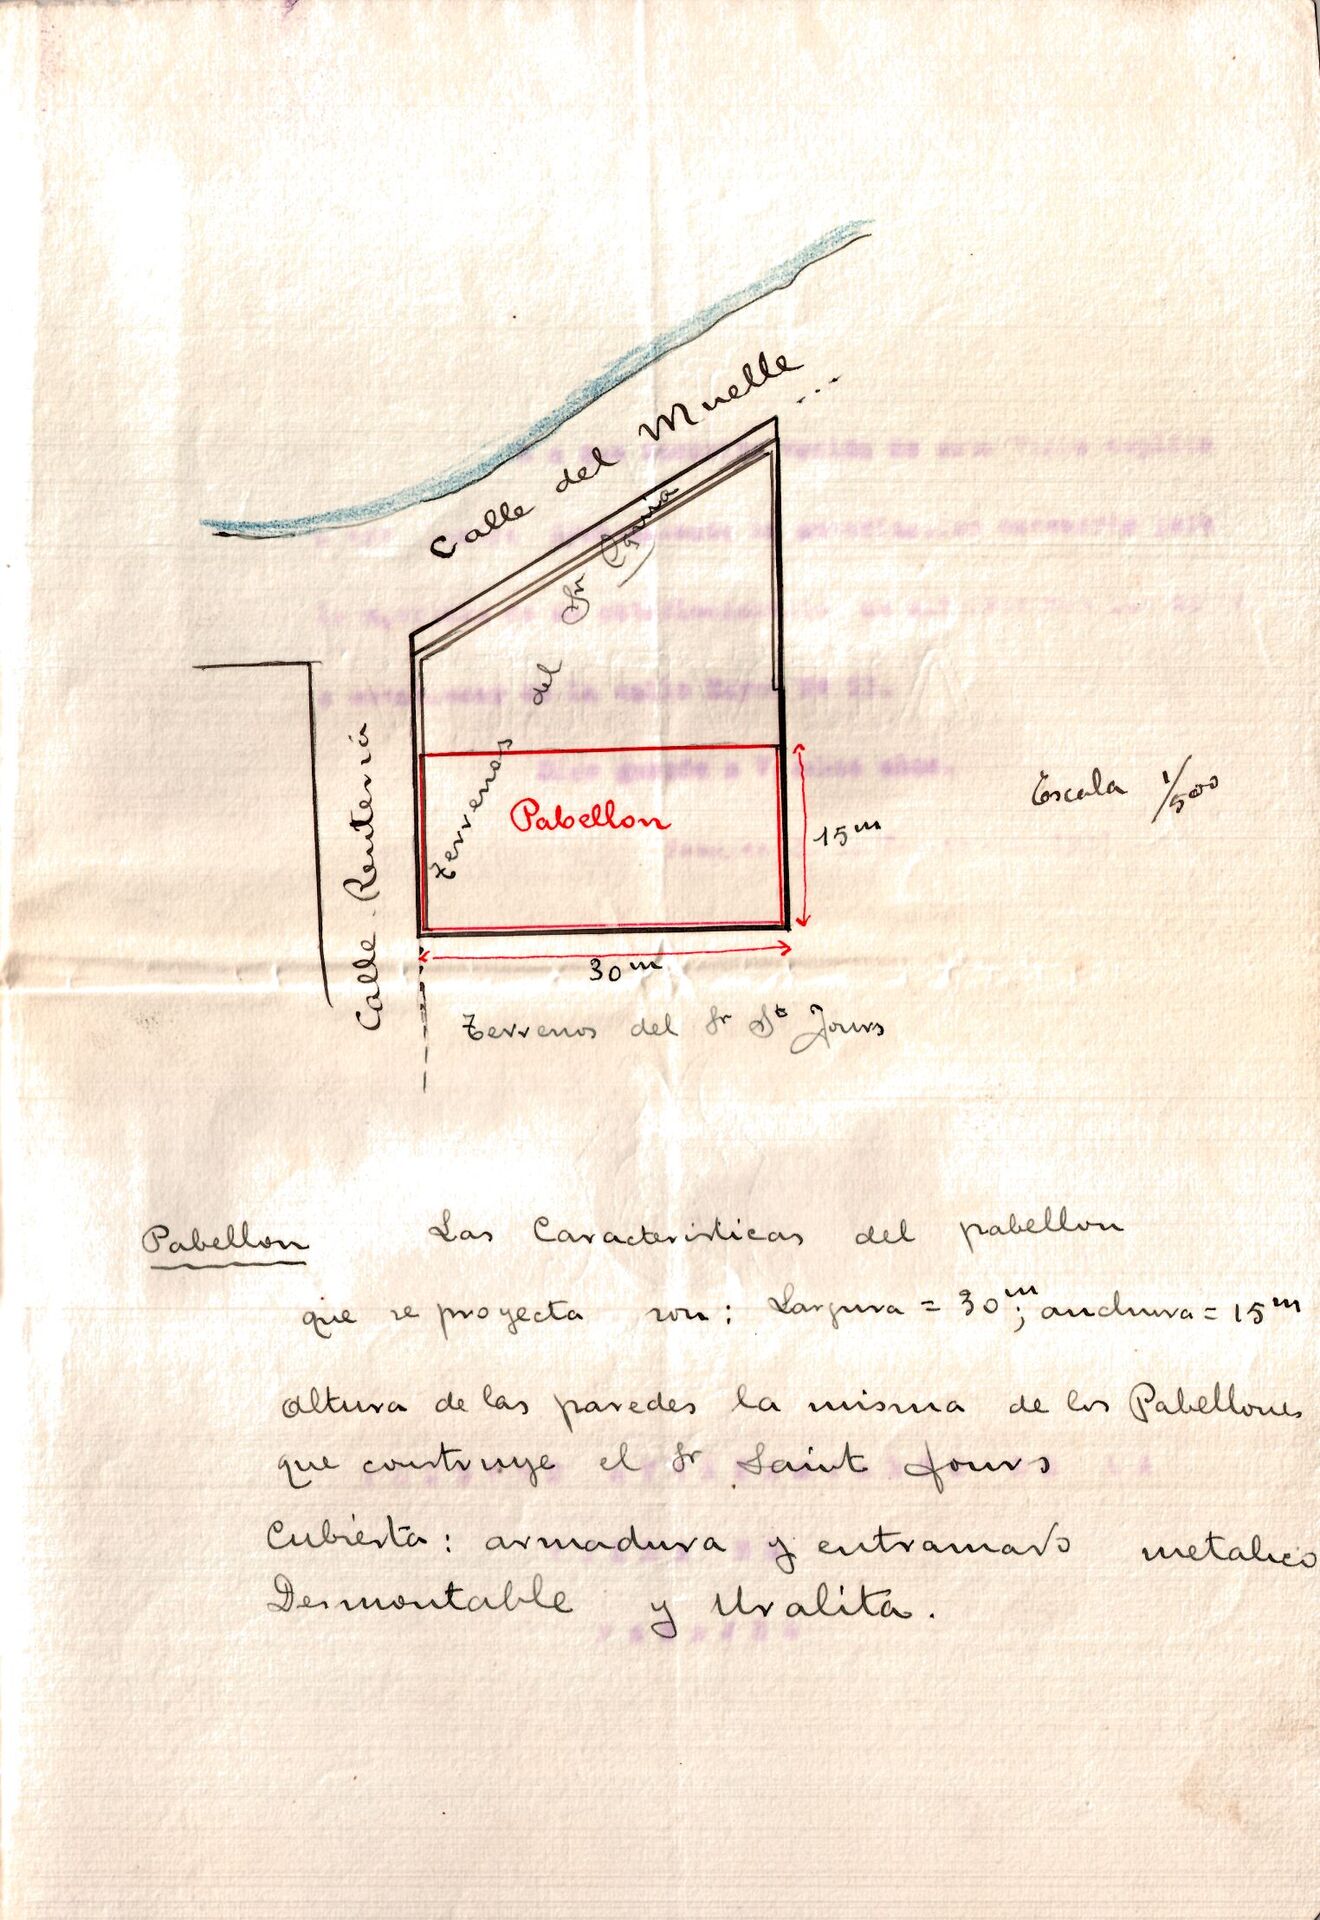 Calle del Muelle
...
Terrenos del Sr
Calle Rentería
Pabellon
15 m
Escala 1/500
30 m
Terrenos del Sr St Jours
Pabellon Las Caracteristicas del pabellon
que se proyecta son: Largura = 30 m; anchura = 15 m
altura de las paredes la misma de los Pabellones
que construye el Sr Saint Jours
Cubierta: armadura y entramado metalico
Desmontable y Uralita.